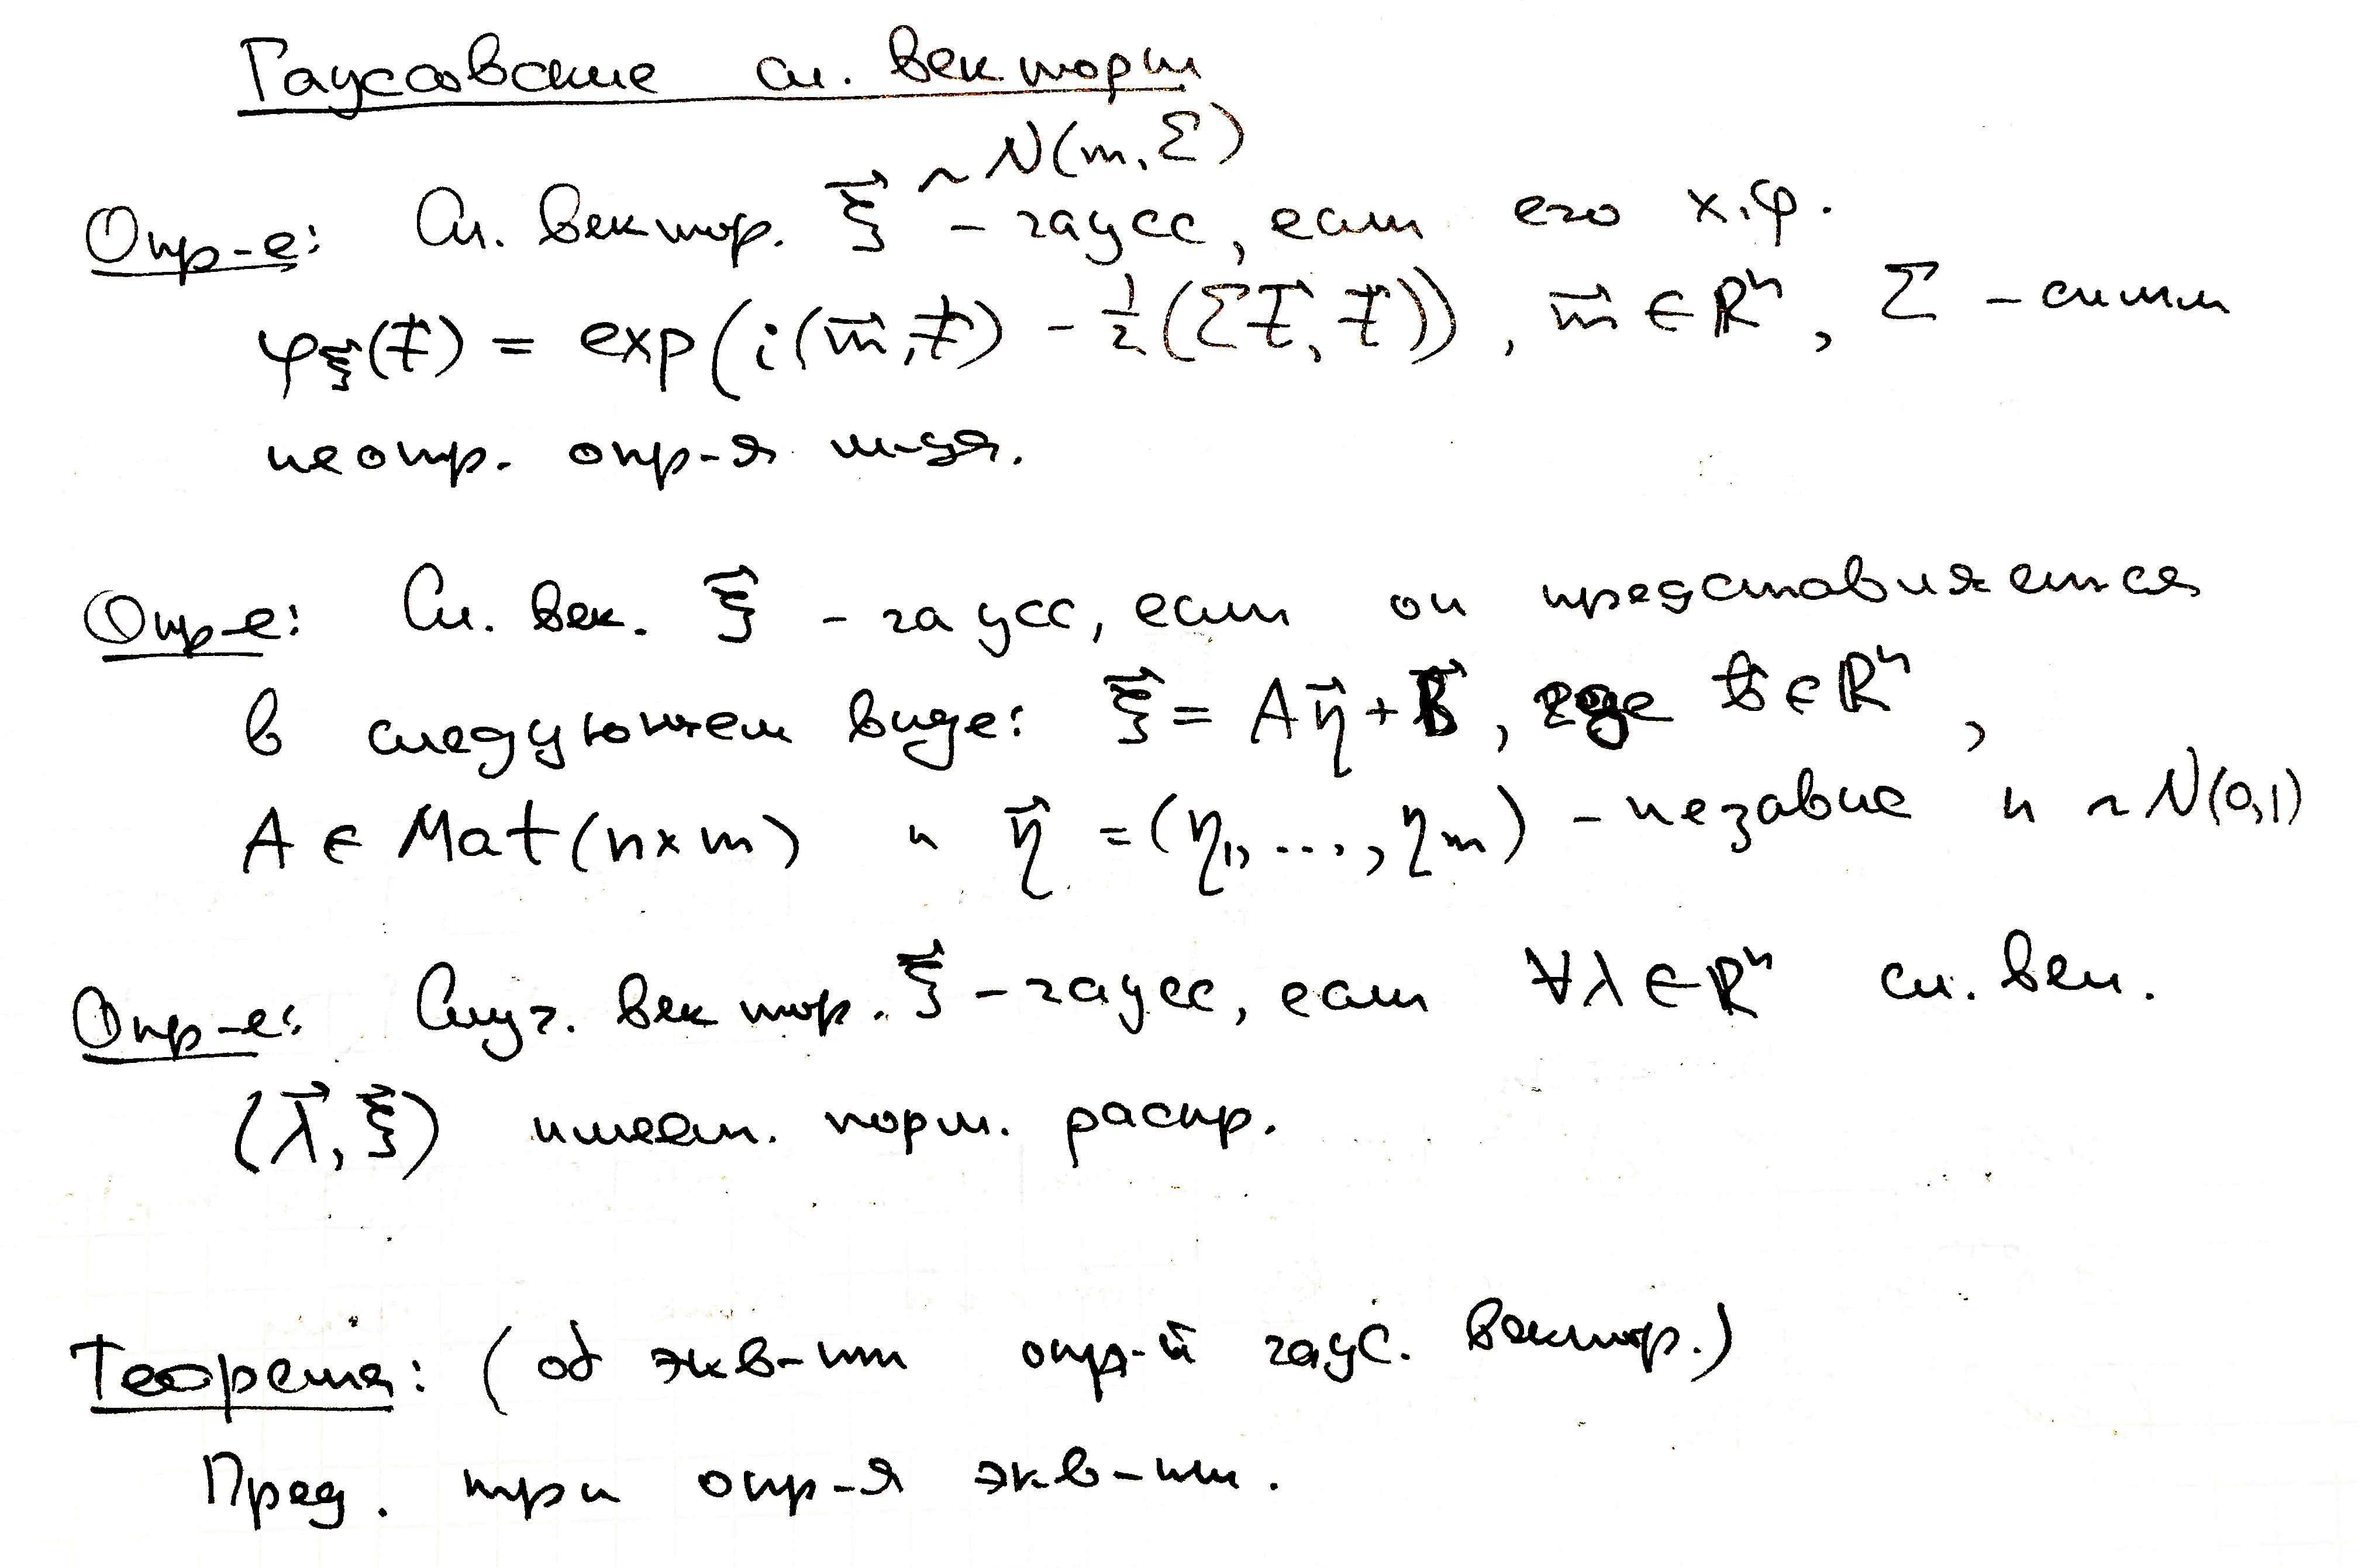 Гауссовские сл. векторы
~ N(m, Σ)
Опр-е: Сл. вектор. ξ⃗ – гаусс, если его х.ф.
φ_ξ⃗(t⃗) = exp(i(m⃗, t⃗) – ½(Σt⃗, t⃗)), m⃗ ∈ ℝⁿ, Σ – симм
неотр. опр-я м-ца.
Опр-е: Сл. век. ξ⃗ – гаусс, если он представляется
в следующем виде: ξ⃗ = Aη⃗ + b⃗, где b⃗ ∈ ℝⁿ,
A ∈ Mat(n×m) и η⃗ = (η₁, ..., ηₘ) – независ и ~ N(0,1)
Опр-е: Случ. вектор. ξ⃗ – гаусс, если ∀λ ∈ ℝⁿ сл. вел.
(λ⃗, ξ⃗) имеет. норм. распр.
Теорема: (об экв-ти опр-й гаус. вектор.)
Пред. три опр-я экв-ны.